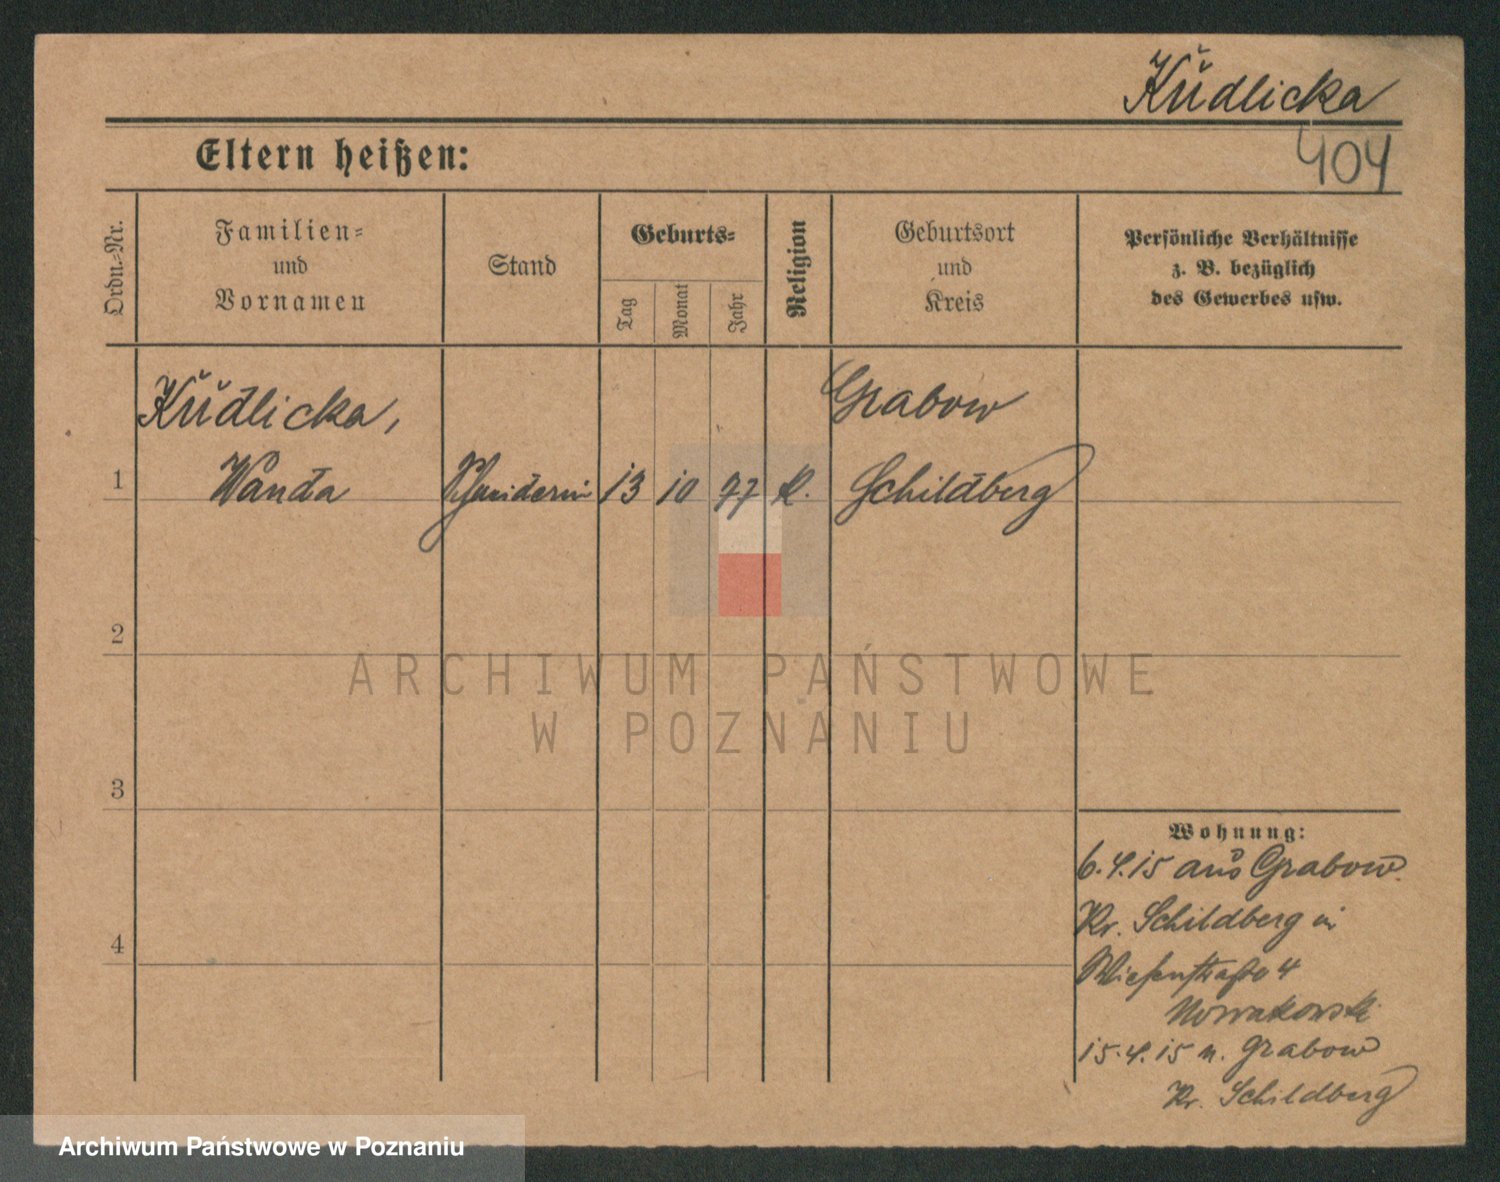 Kudlicka
404
Eltern heißen:
Ordn.-Nr.
Familien-
und
Vornamen
Stand
Geburts-
Tag
Monat
Jahr
Religion
Geburtsort
und
Kreis
Persönliche Verhältnisse
z. B. bezüglich
des Gewerbes usw.
Kudlicka,
Grabow
1 Wanda Schneiderin 13 10 97 k. Schildberg
2
ARCHIWUM PAŃSTWOWE
W POZNANIU
3
Wohnung:
6.4.15 aus Grabow
Kr. Schildberg in
Wiesenstraße 4
Nowakowski
4
15.4.15 n. Grabow
Kr. Schildberg
Archiwum Państwowe w Poznaniu